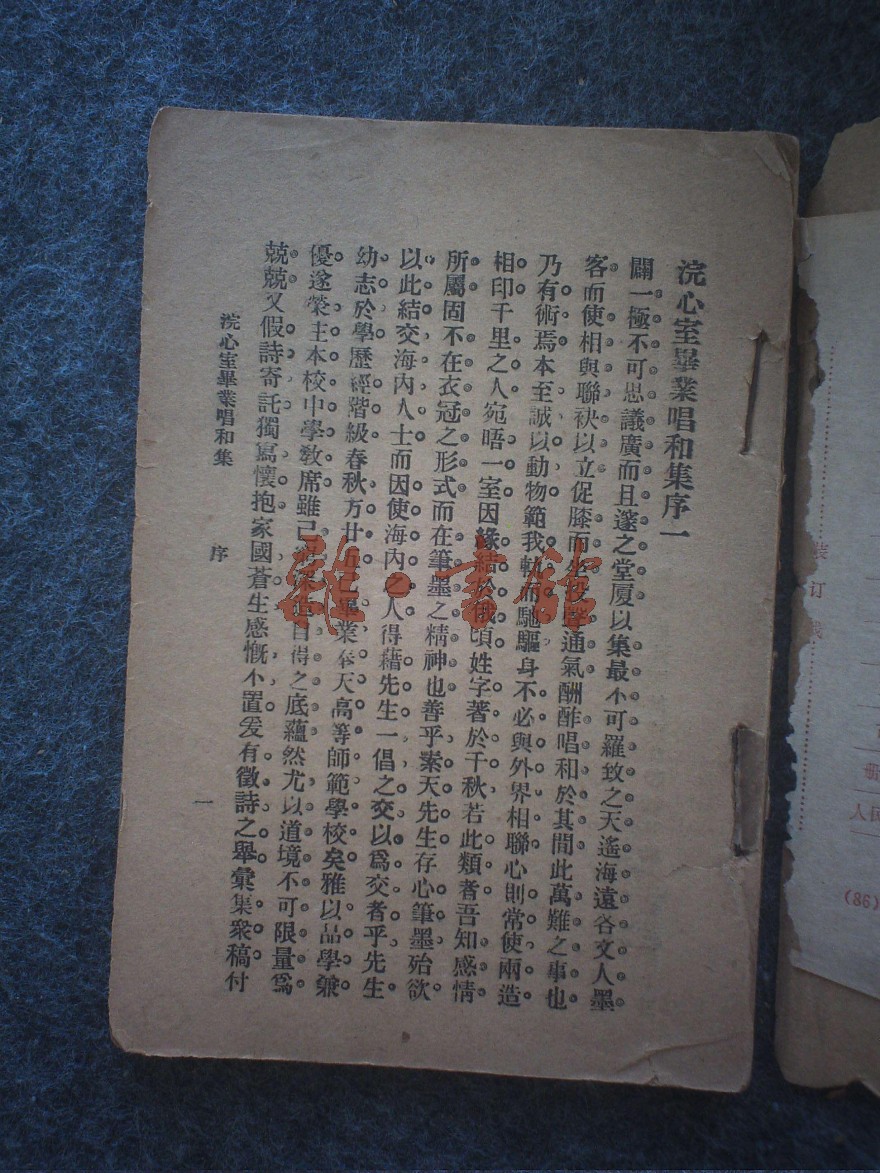 浣心室畢業唱和集序一
闢一極不可思議廣而且邃之堂厦以集最不可羅致之天遙海遠各文人墨
客而使相與聯袂以立促膝而坐投聲通氣酬酢唱和於其間此萬難之事也
乃有術焉本至誠以動物範我軌而馳驅身不必與外界相聯心則常使兩造
相印千里之人宛晤一室因緣結於俄頃姓字著於千秋若此類者吾知感情
所屬固不在衣冠之形式而在筆墨之精神也善乎素天先生存心筆墨殆欲
以此結交海内人士而因使海内之人得藉先生一倡之交以爲交者乎先生
幼志於學歷經階級春秋方廿五已畢業奉天高等師範學校矣雅以品學兼
優遂榮主本校中學教席雖已深造自得之底蘊然尤以道境不可限量爲
兢兢又假詩寄託獨寫懷抱家國蒼生感慨不置爰有徵詩之舉彙集衆稿付
浣心室畢業唱和集
序
一
雜·書館
装
订
册
(86)